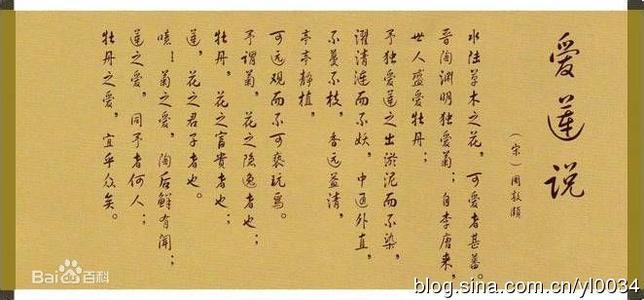 爱莲说
（宋）周敦颐
水陆草木之花，可爱者甚蕃。
晋陶渊明独爱菊；自李唐来，
世人盛爱牡丹；
予独爱莲之出淤泥而不染，
濯清涟而不妖，中通外直，
不蔓不枝，香远益清，
亭亭静植，
可远观而不可亵玩焉。
予谓菊，花之隐逸者也；
牡丹，花之富贵者也；
莲，花之君子者也。
噫！菊之爱，陶后鲜有闻；
莲之爱，同予者何人；
牡丹之爱，宜乎众矣。
Bai百科
blog.sina.com.cn/yl0034